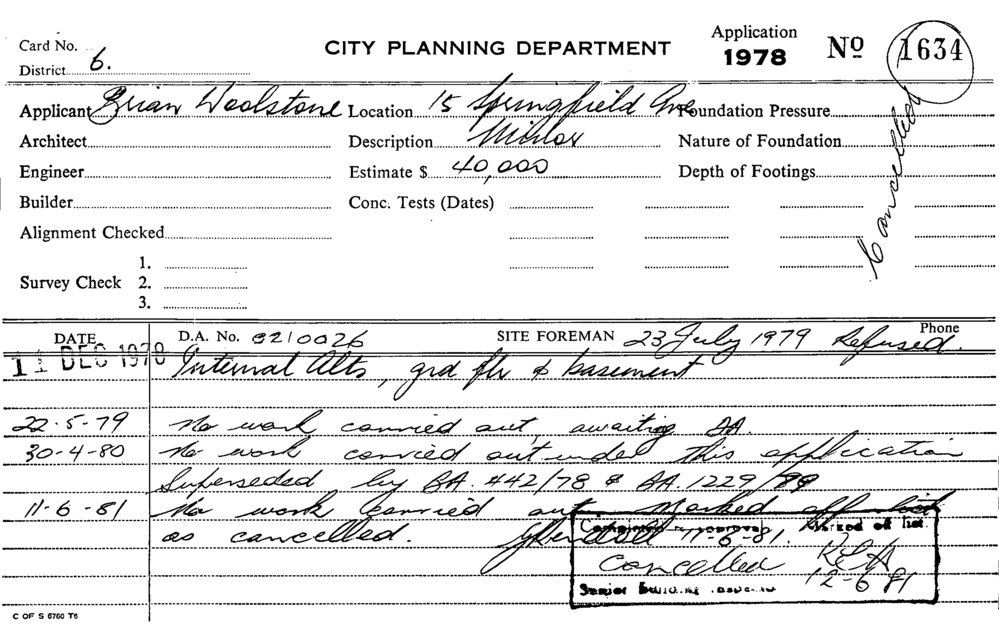 Card No.
CITY PLANNING DEPARTMENT
Application
1978
Nº 1634
District 6.
Applicant Brian Woolstone
Location 15 Springfield Ave
Foundation Pressure
Cancelled
Architect
Description Minor
Nature of Foundation
Engineer
Estimate $ 40,000
Depth of Footings
Builder
Conc. Tests (Dates)
Alignment Checked
Survey Check
1.
2.
3.
DATE
D.A. No. 8210026
SITE FOREMAN 23 July 1979 Refused.
Phone
11 DEC 1978 Internal Alts, grd flr & basement
22-5-79 No work carried out, awaiting DA.
30-4-80 No work carried out under this application
Superseded by BA. 442/78 & BA. 1229/
11-6-81 No work carried out. Marked off list
as cancelled. 11-6-81.
Marked of list
Cancelled
12-6-81
Senior
C OF S 6760 T6